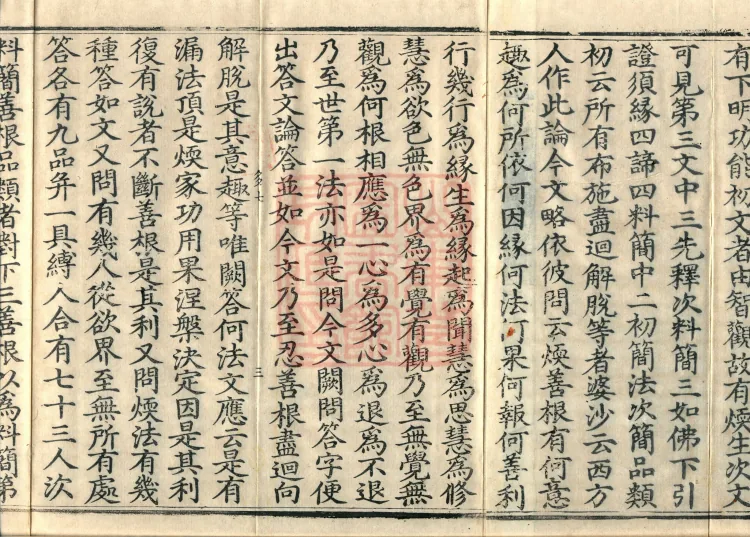 有下明功能初文者由智觀故有煗生次文
可見第三文中三先釋次料簡三如佛下引
證須緣四諦四料簡中二初簡法次簡品類
初云所有布施盡迴解脫等者婆沙云西方
人作此論今文略依彼問云煗善根有何意
趣為何所依何因緣何法何果何報何善利
行幾行為緣生為緣起為聞慧為思慧為修
慧為欲色無色界為有覺有觀乃至無覺無
觀為何根相應為一心為多心為退為不退
乃至世第一法亦如是問今文闕問答字便
出答文論答並如今文乃至忍善根盡迴向
三
解脫是其意趣等唯闕答何法文應云是有
漏法頂是煗家功用果涅槃決定因是其利
復有說者不斷善根是其利又問煗法有幾
種答如文又問有幾人從欲界至無所有處
答各有九品并一具縛人合有七十三人次
料簡善根品類者對下三善根以為料簡第